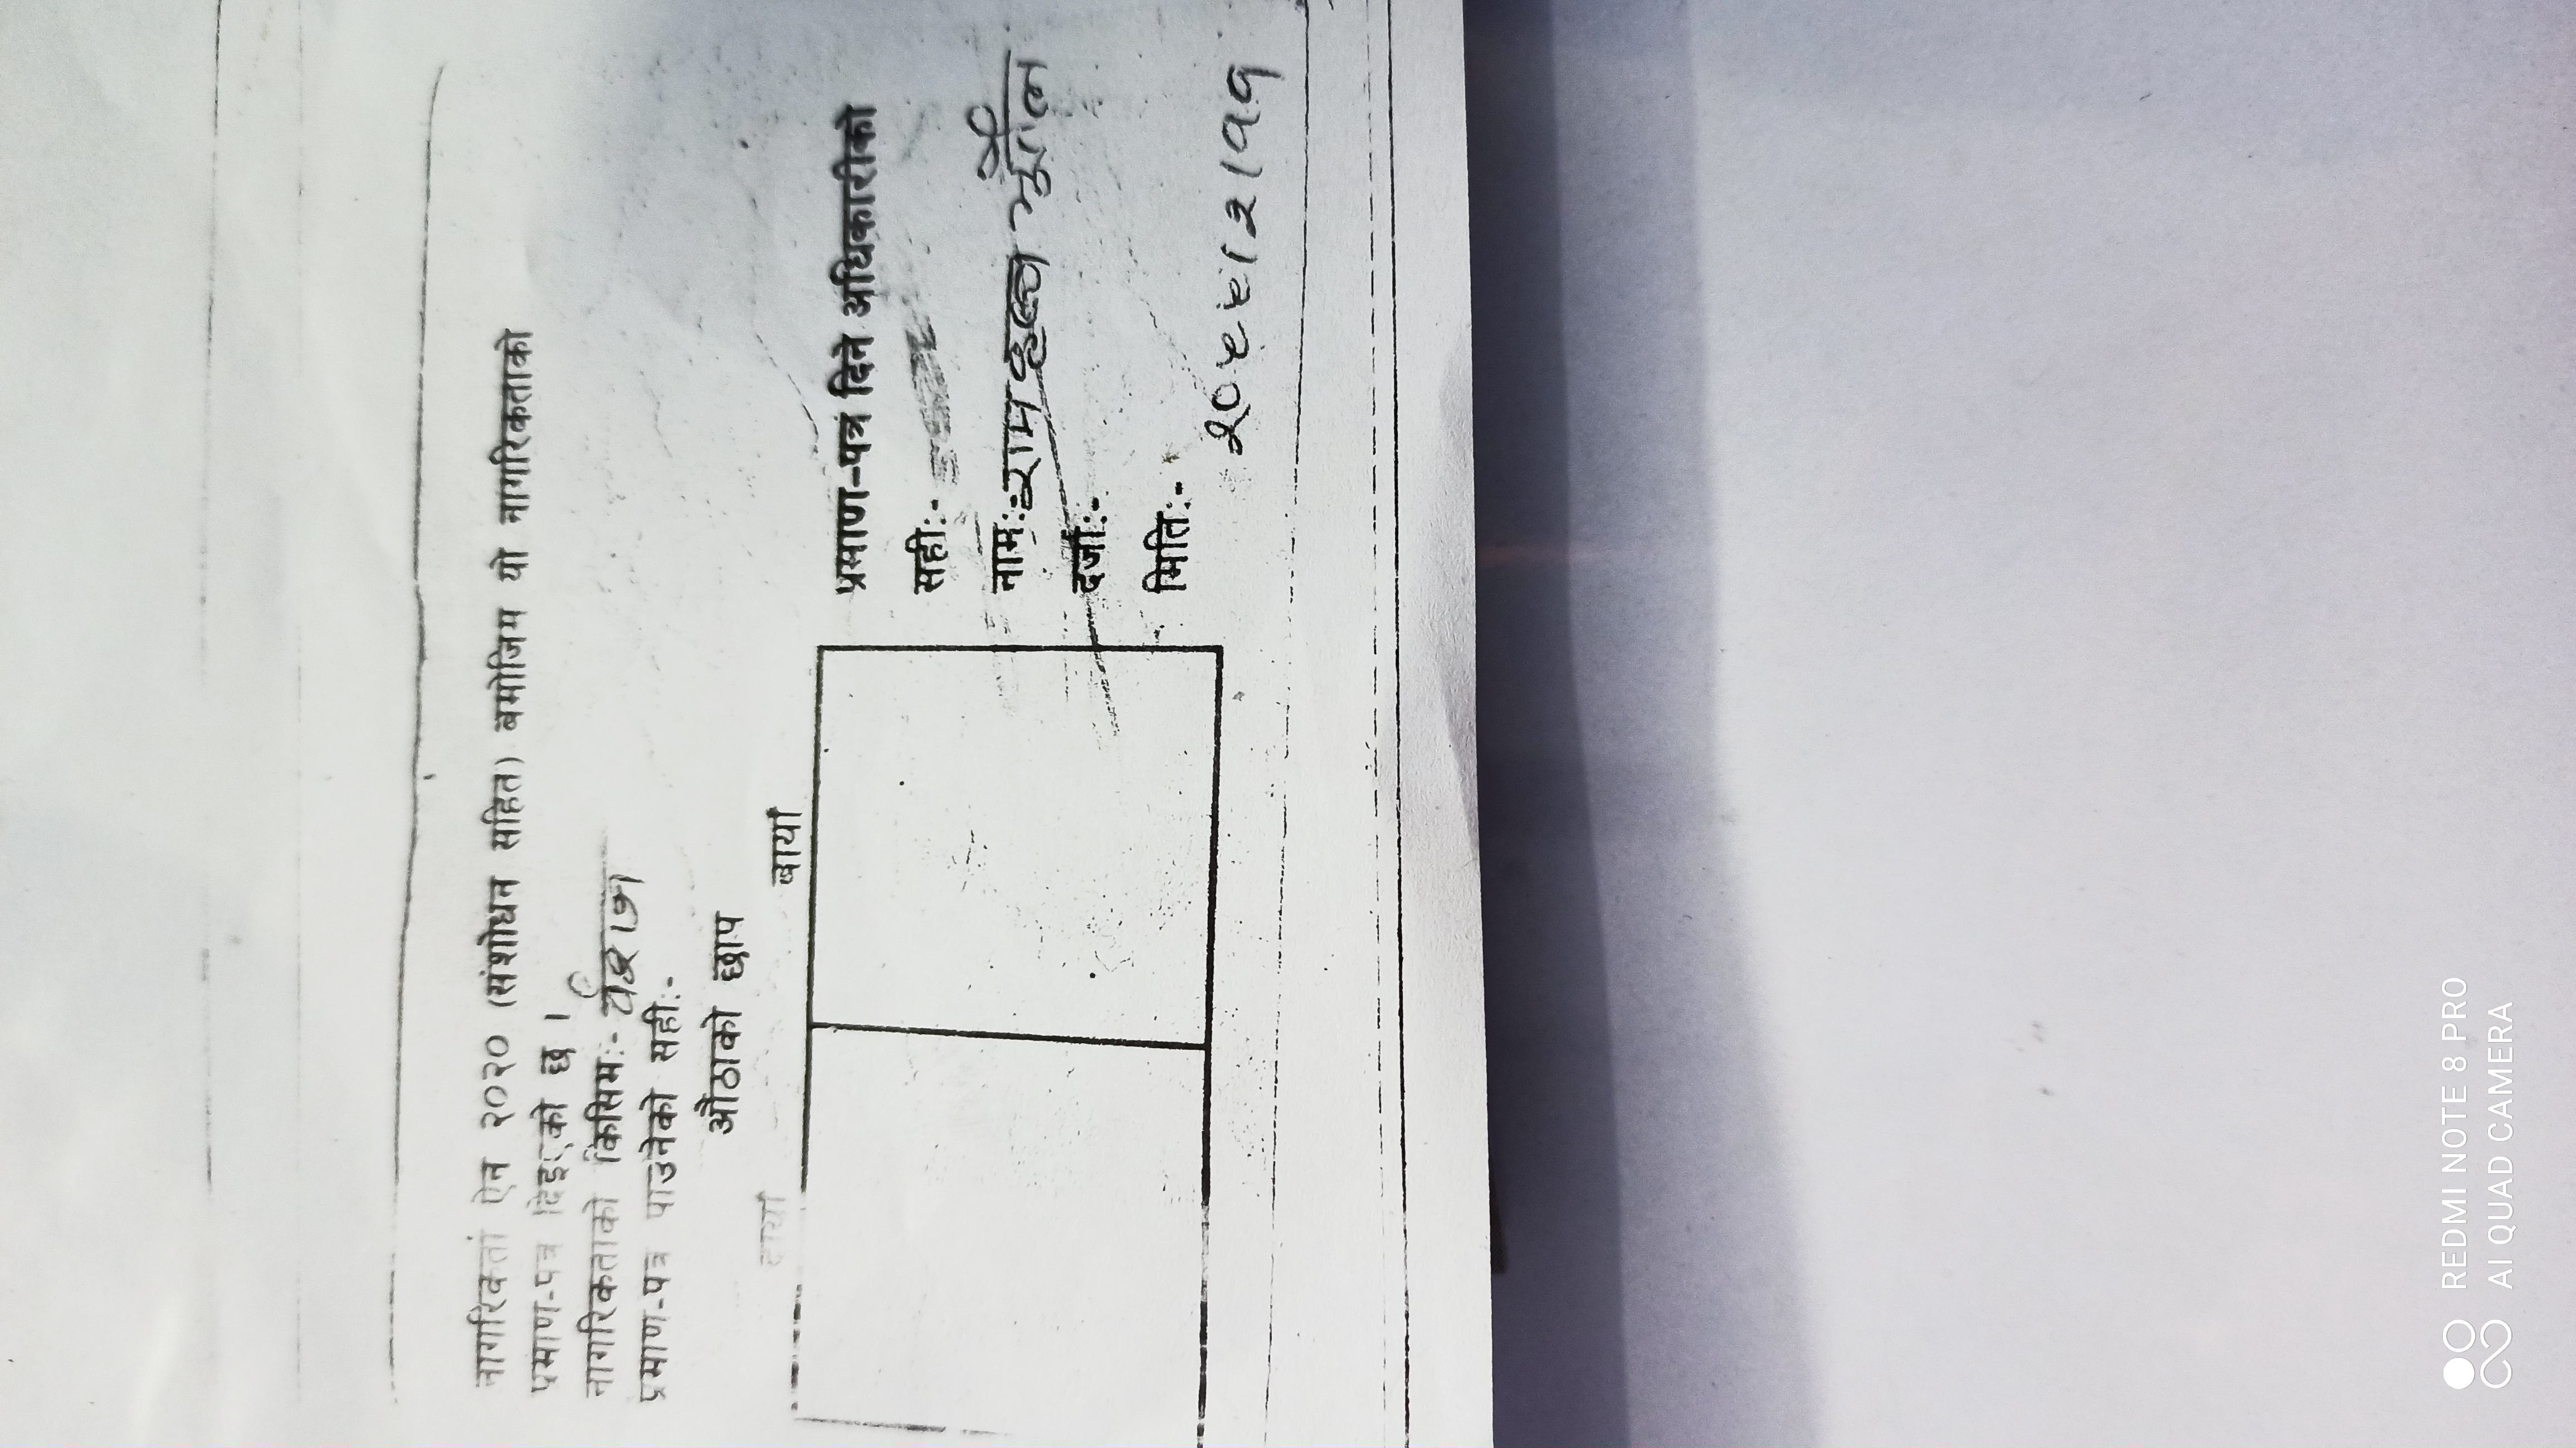 नागरिकता ऐन २०२० (संशोधन सहित) बमोजिम यो नागरिकताको
प्रमाण-पत्र दिइएको छ ।
नागरिकताको किसिम:- वंशज
प्रमाण-पत्र पाउनेको सही:-
औंठाको छाप
दायाँ बायाँ
प्रमाण-पत्र दिने अधिकारीको
सही:-
नाम:- राम
दर्जा:-
मिति:-
२०५५।२।११
REDMI NOTE 8 PRO
AI QUAD CAMERA